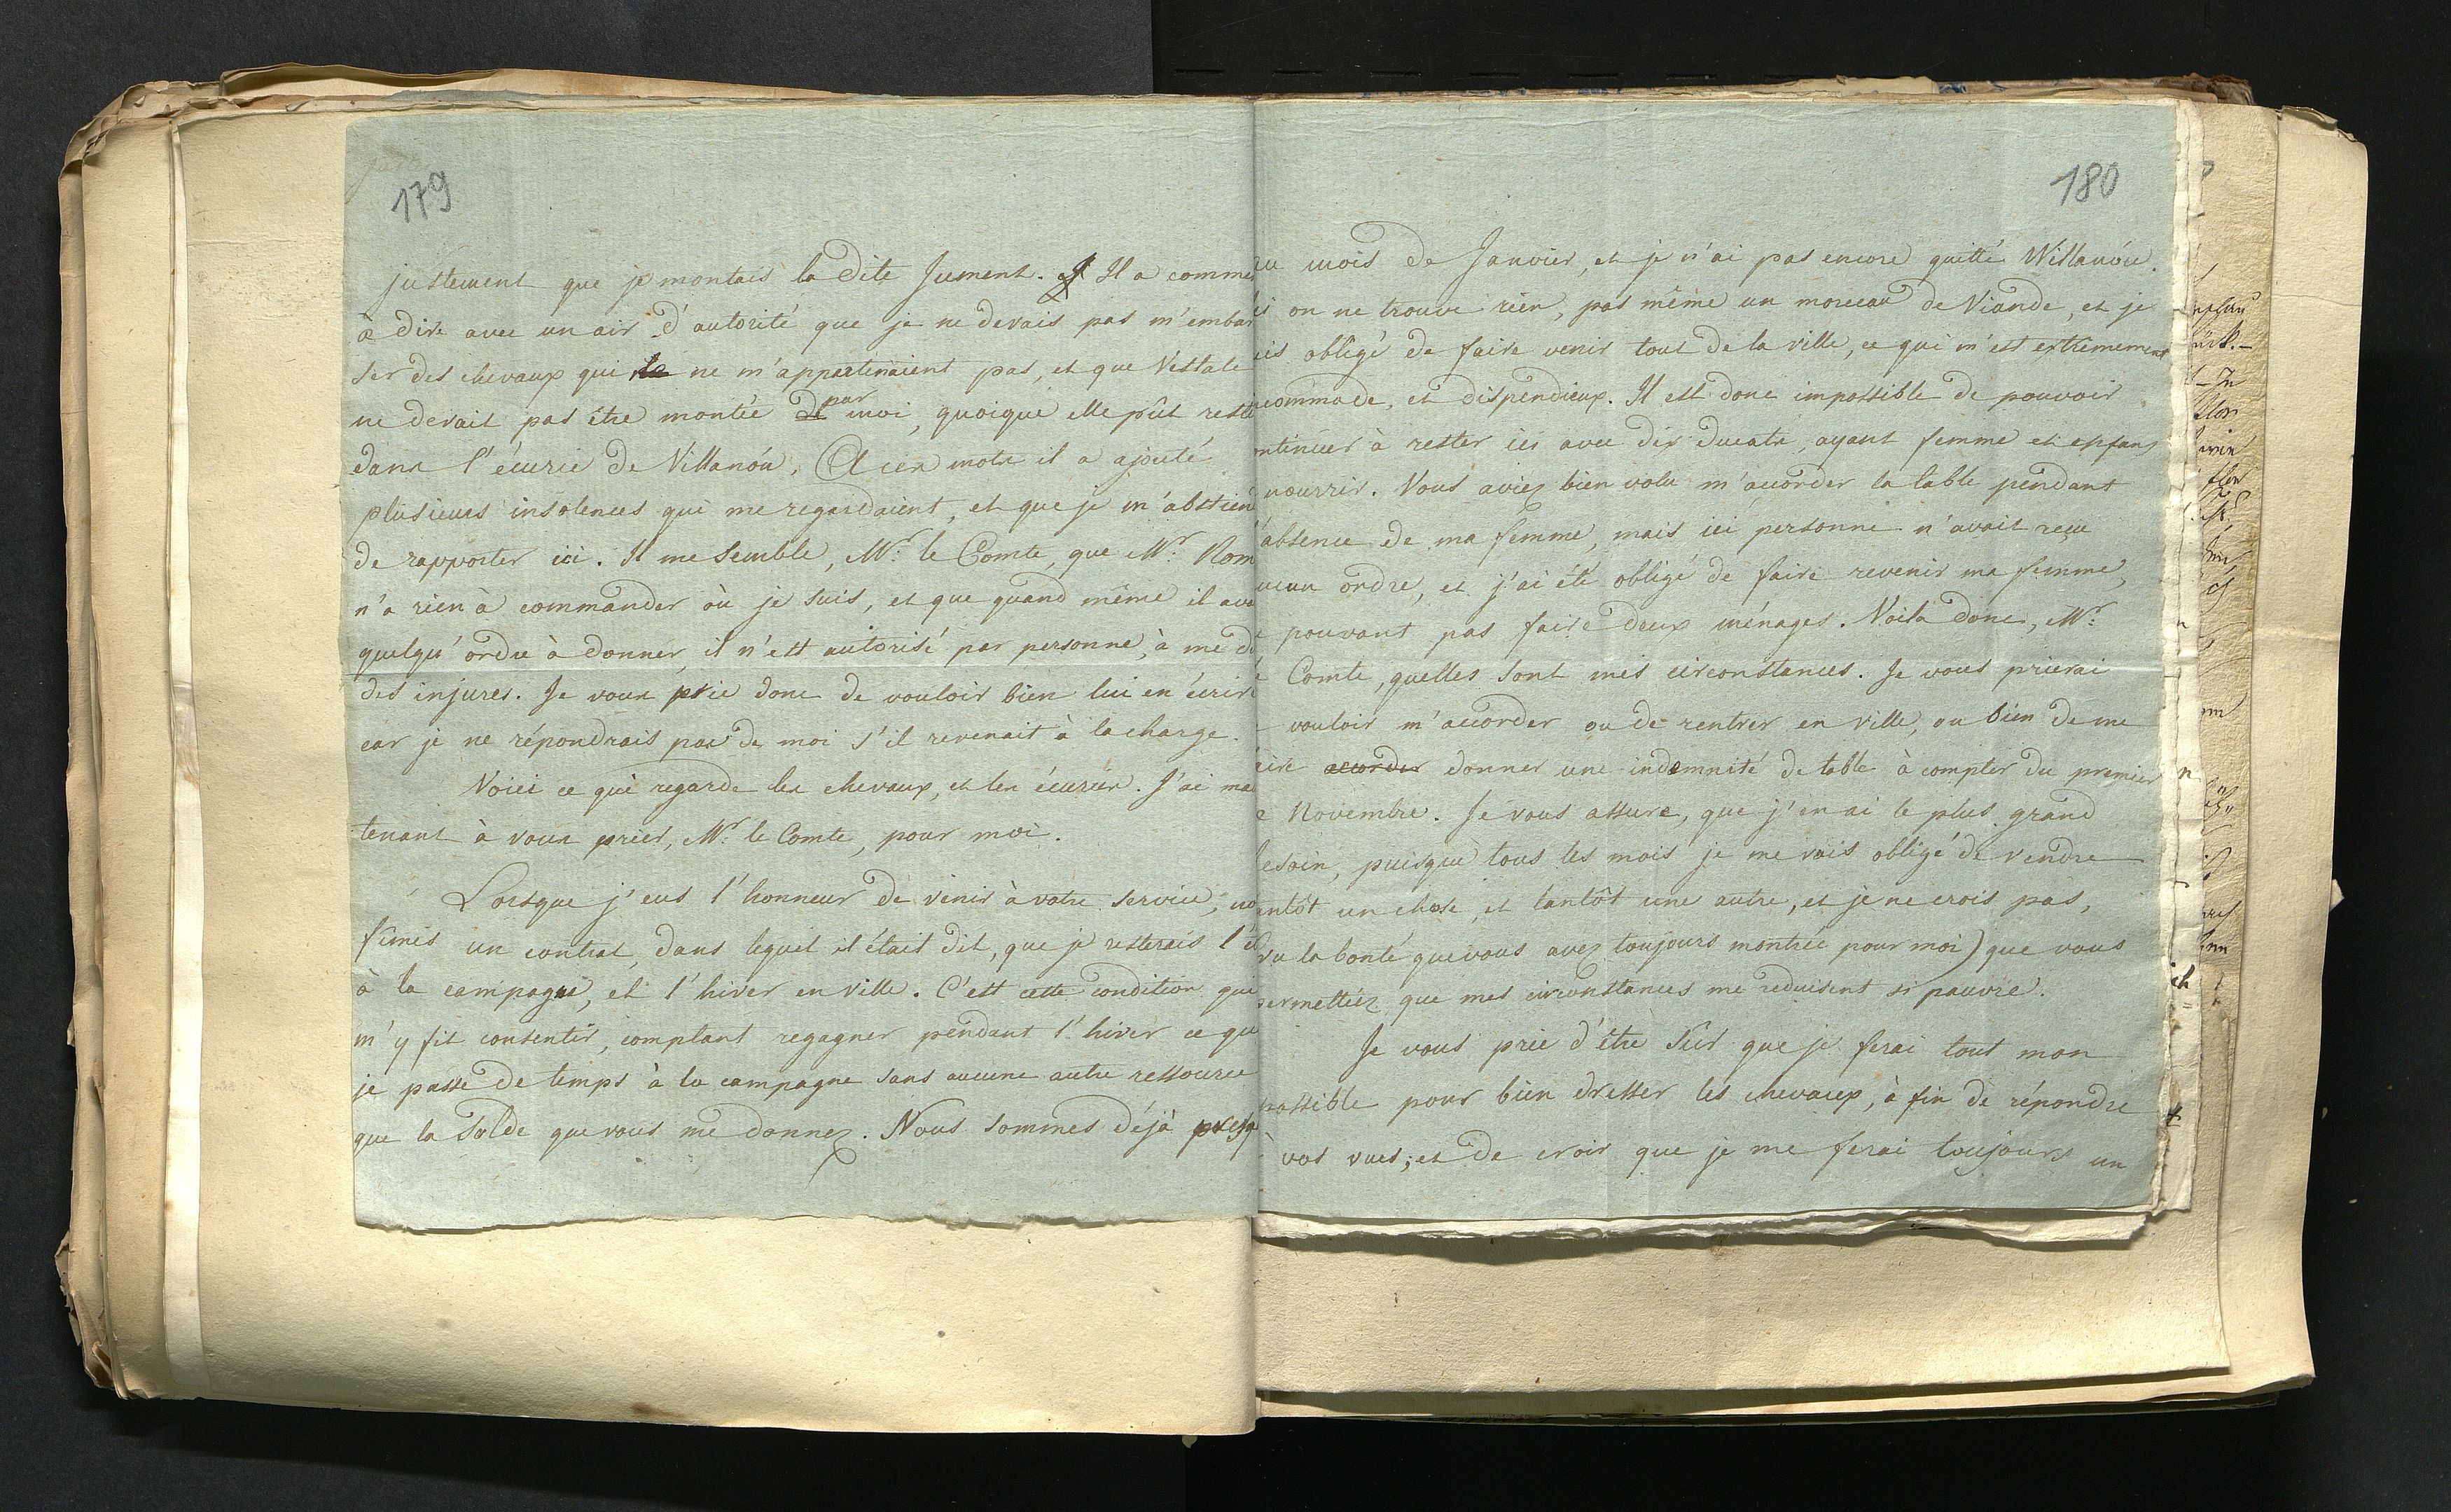 179
justement que je montais la dite Jument. Il a comme
à dire avec un air d'autorité que je ne devais pas m'embar
ser des chevaux qui ne m'appartenaient pas, et que Vestale
ne devait pas être montée par moi, quoique elle pût reste
dans l'écurie de Villanóu. A ces mots il a ajouté
plusieurs insolences qui me regardaient, et que je m'abstien
de rapporter ici. Il me semble, Mr. le Comte, que Mr. Rom
n'a rien à commander où je suis, et que quand même il ava
quelqu'ordre à donner, il n'est autorisé par personne, à me d
des injures. Je vous prie donc de vouloir bien lui en écrire
car je ne répondrais pas de moi s'il revenait à la charge.
Voici ce qui regarde les chevaux, et les écuries. J'ai ma
tenant à vous prier, Mr. le Comte, pour moi.
Lorsque j'eus l'honneur de venir à votre service, no
fîmes un contrat, dans lequel il était dit, que je resterais l'é
à la campagne, et l'hiver en ville. C'est cette condition qui
m'y fit consentir, comptant regagner pendant l'hiver ce qu
je passe de temps à la campagne sans aucune autre ressource
que la solde que vous me donnez. Nous sommes déjà presq
180
au mois de Janvier, et je n'ai pas encore quitté Willanów.
ici on ne trouve rien, pas même un morceau de Viande, et je
uis obligé de faire venir tout de la ville, ce qui m'est extremement
ncommode, et dispendieux. Il est donc impossible de pouvoir
ntinuer à rester ici avec dix ducats, ayant femme et enfans
nourrir. Vous aviez bien volu m'accorder la table pendant
l'absence de ma femme, mais ici personne n'avait reçu
ucun ordre, et j'ai été obligé de faire revenir ma femme,
e pouvant pas faire deux ménages. Voilà donc, Mr.
Comte, quelles sont mes circonstances. Je vous prierai
vouloir m'accorder ou de rentrer en ville, ou bien de me
aire accorder donner une indemnité de table à compter du premier
e Novembre. Je vous assure, que j'en ai le plus grand
besoin, puisque tous les mois je me vois obligé de vendre
antôt un chose, et tantôt une autre, et je ne crois pas,
(vu la bonté que vous avez toujours montrée pour moi) que vous
permettiez que mes circonstances me reduisent si pauvre.
Je vous prie d'être sûr que je ferai tout mon
possible pour bien dresser les chevaux, à fin de répondre
à vos vues; et de croir que je me ferai toujours un